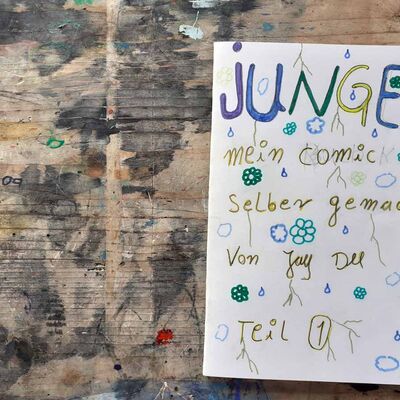 JUNGE
mein comic
selber gemac
Von Jay Dee
Teil 1